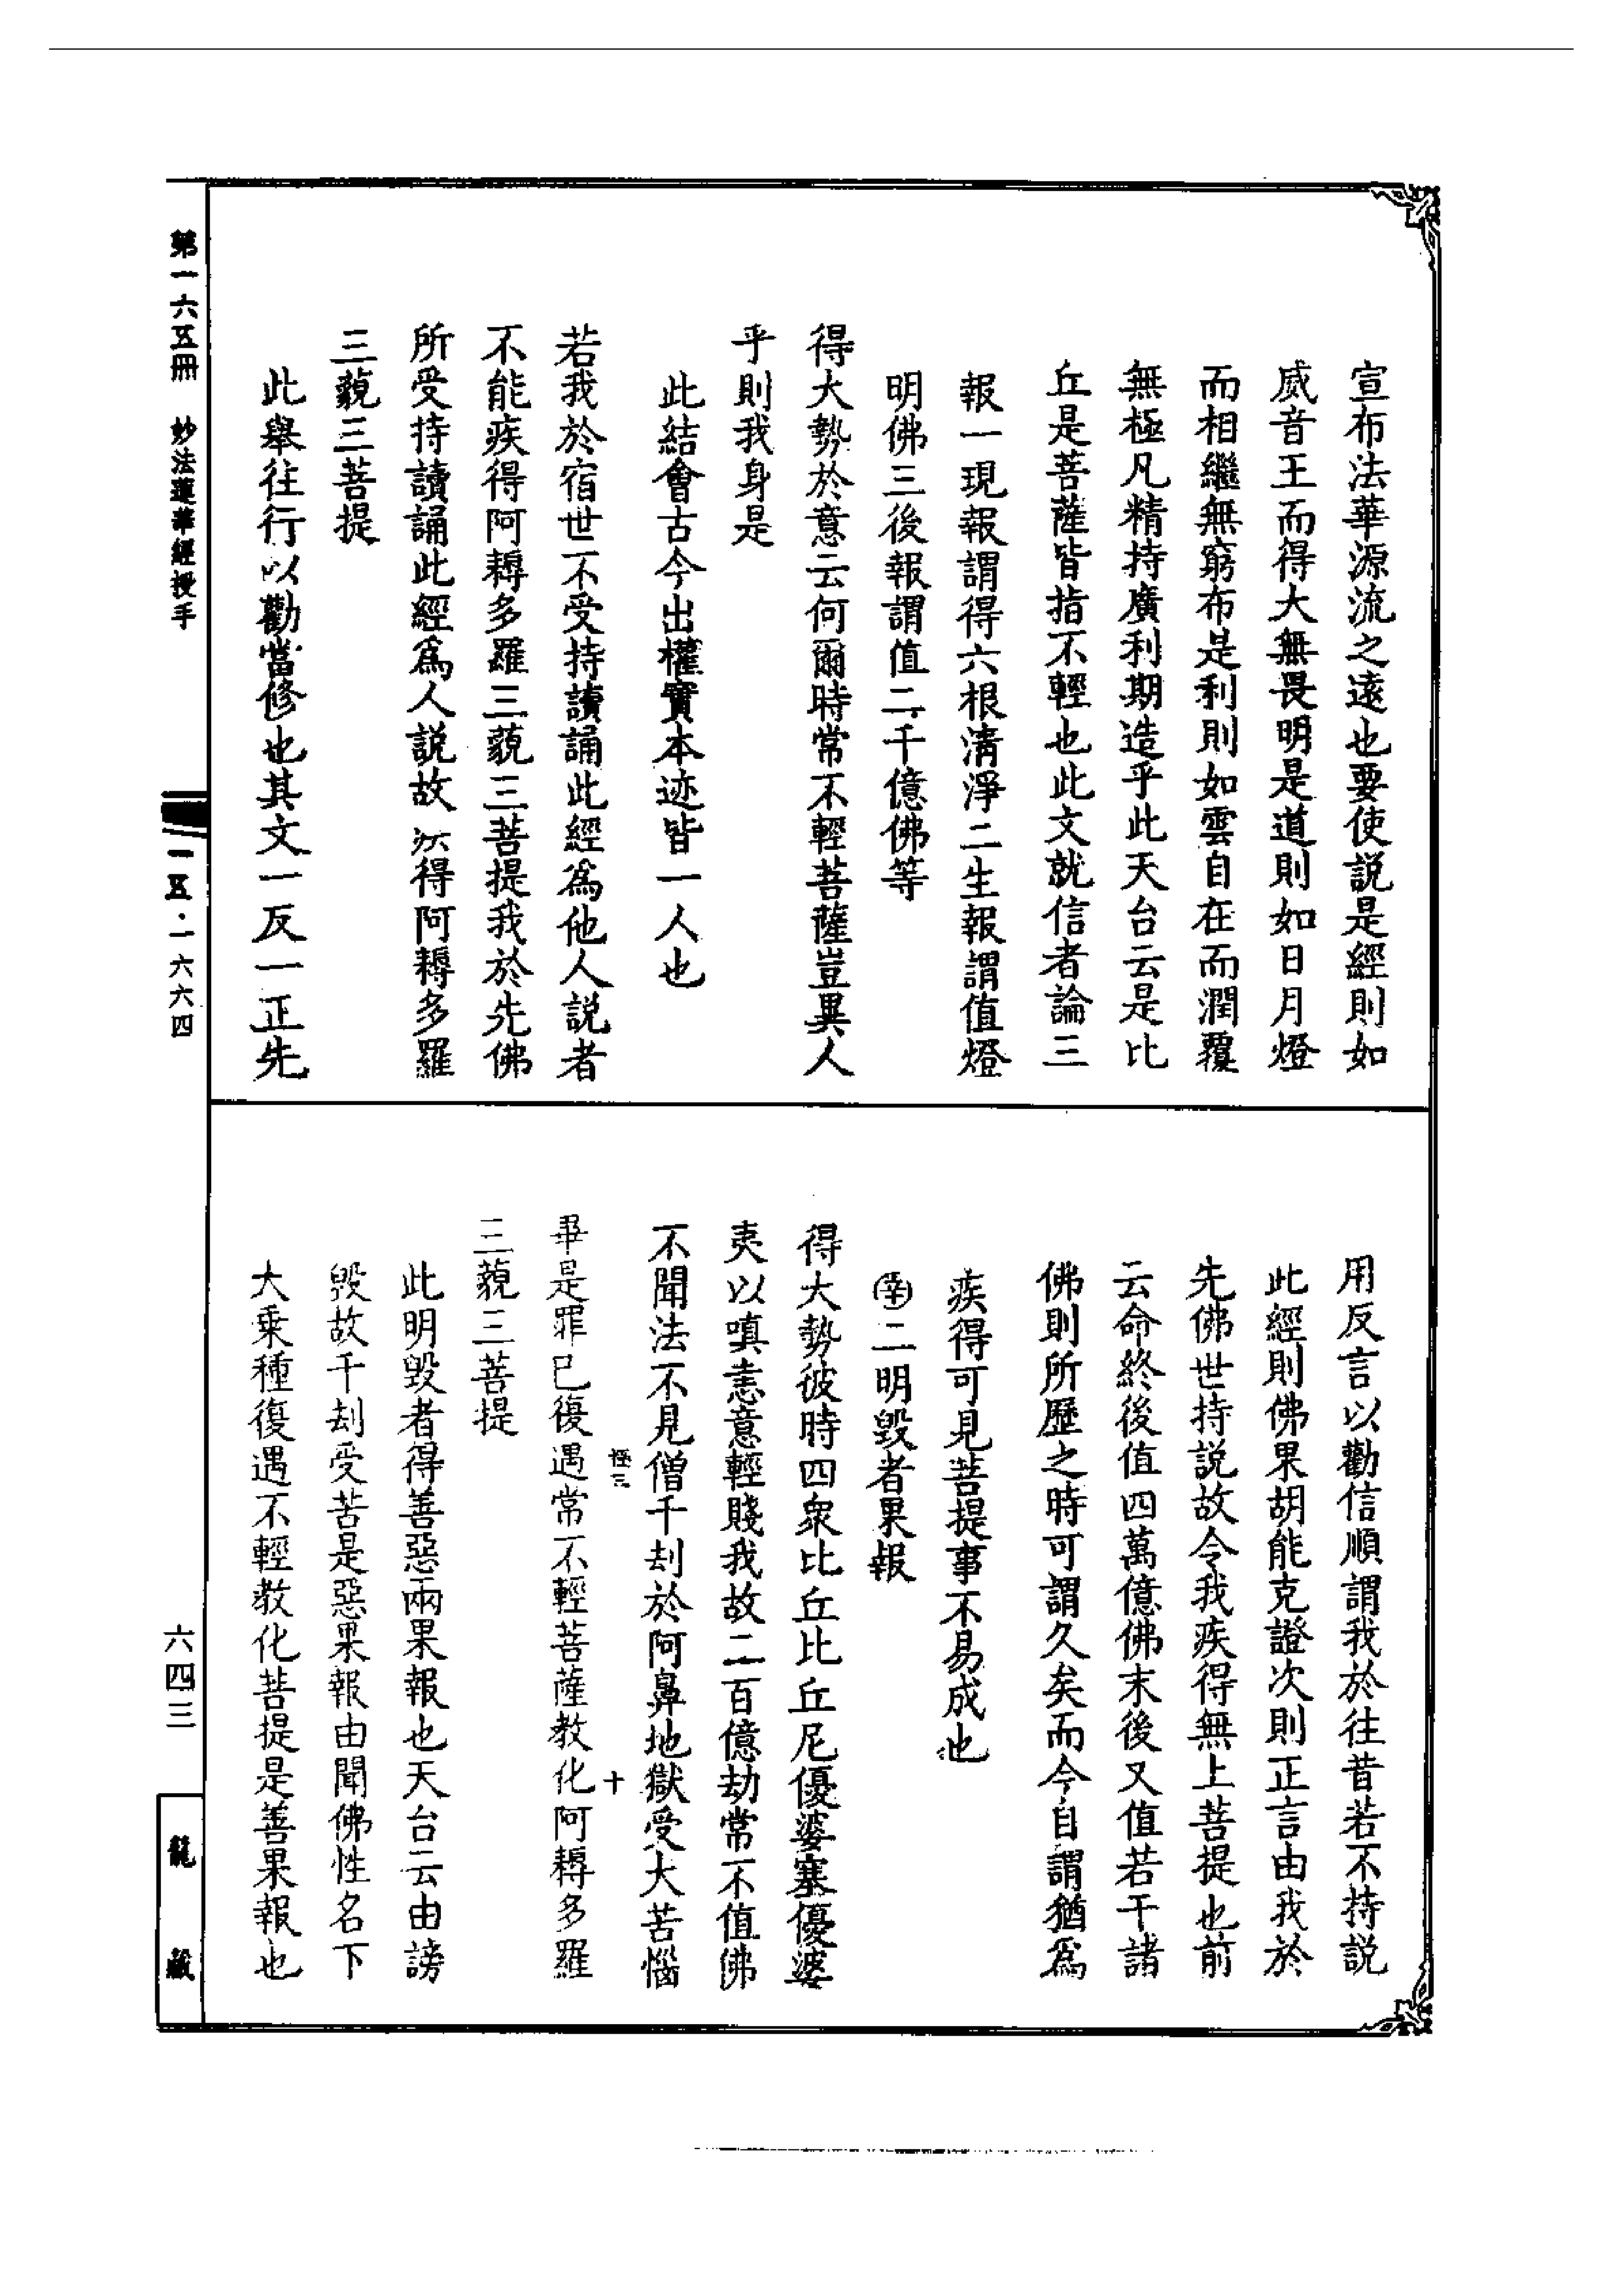 宣布法華源流之遠也要使説是經則如
威音王而得大無畏明是道則如日月燈
而相繼無窮布是利則如雲自在而潤覆
無極凡精持廣利期造乎此天台云是比
丘是菩薩皆指不輕也此文就信者論三
報一現報謂得六根清淨二生報謂值燈
明佛三後報謂值二千億佛等
得大勢於意云何爾時常不輕菩薩豈異人
乎則我身是
此結會古今出權實本迹皆一人也
若我於宿世不受持讀誦此經爲他人説者
不能疾得阿耨多羅三藐三菩提我於先佛
所受持讀誦此經爲人説故疾得阿耨多羅
三藐三菩提
此舉往行以勸當修也其文一反一正先
用反言以勸信順謂我於往昔若不持説
此經則佛果胡能克證次則正言由我於
先佛世持説故令我疾得無上菩提也前
云命終後值四萬億佛末後又值若干諸
佛則所歷之時可謂久矣而今自謂猶爲
疾得可見菩提事不易成也
㊛二明毀者果報
得大勢彼時四衆比丘比丘尼優婆塞優婆
夷以嗔恚意輕賤我故二百億劫常不值佛
不聞法不見僧千刦於阿鼻地獄受大苦惱
極三 十
畢是罪已復遇常不輕菩薩教化阿耨多羅
三藐三菩提
此明毀者得善惡兩果報也天台云由謗
毀故千刦受苦是惡果報由聞佛性名下
大乘種復遇不輕教化菩提是善果報也
第一六五冊 妙法蓮華經授手
一五·一六六四
六四三
龍藏